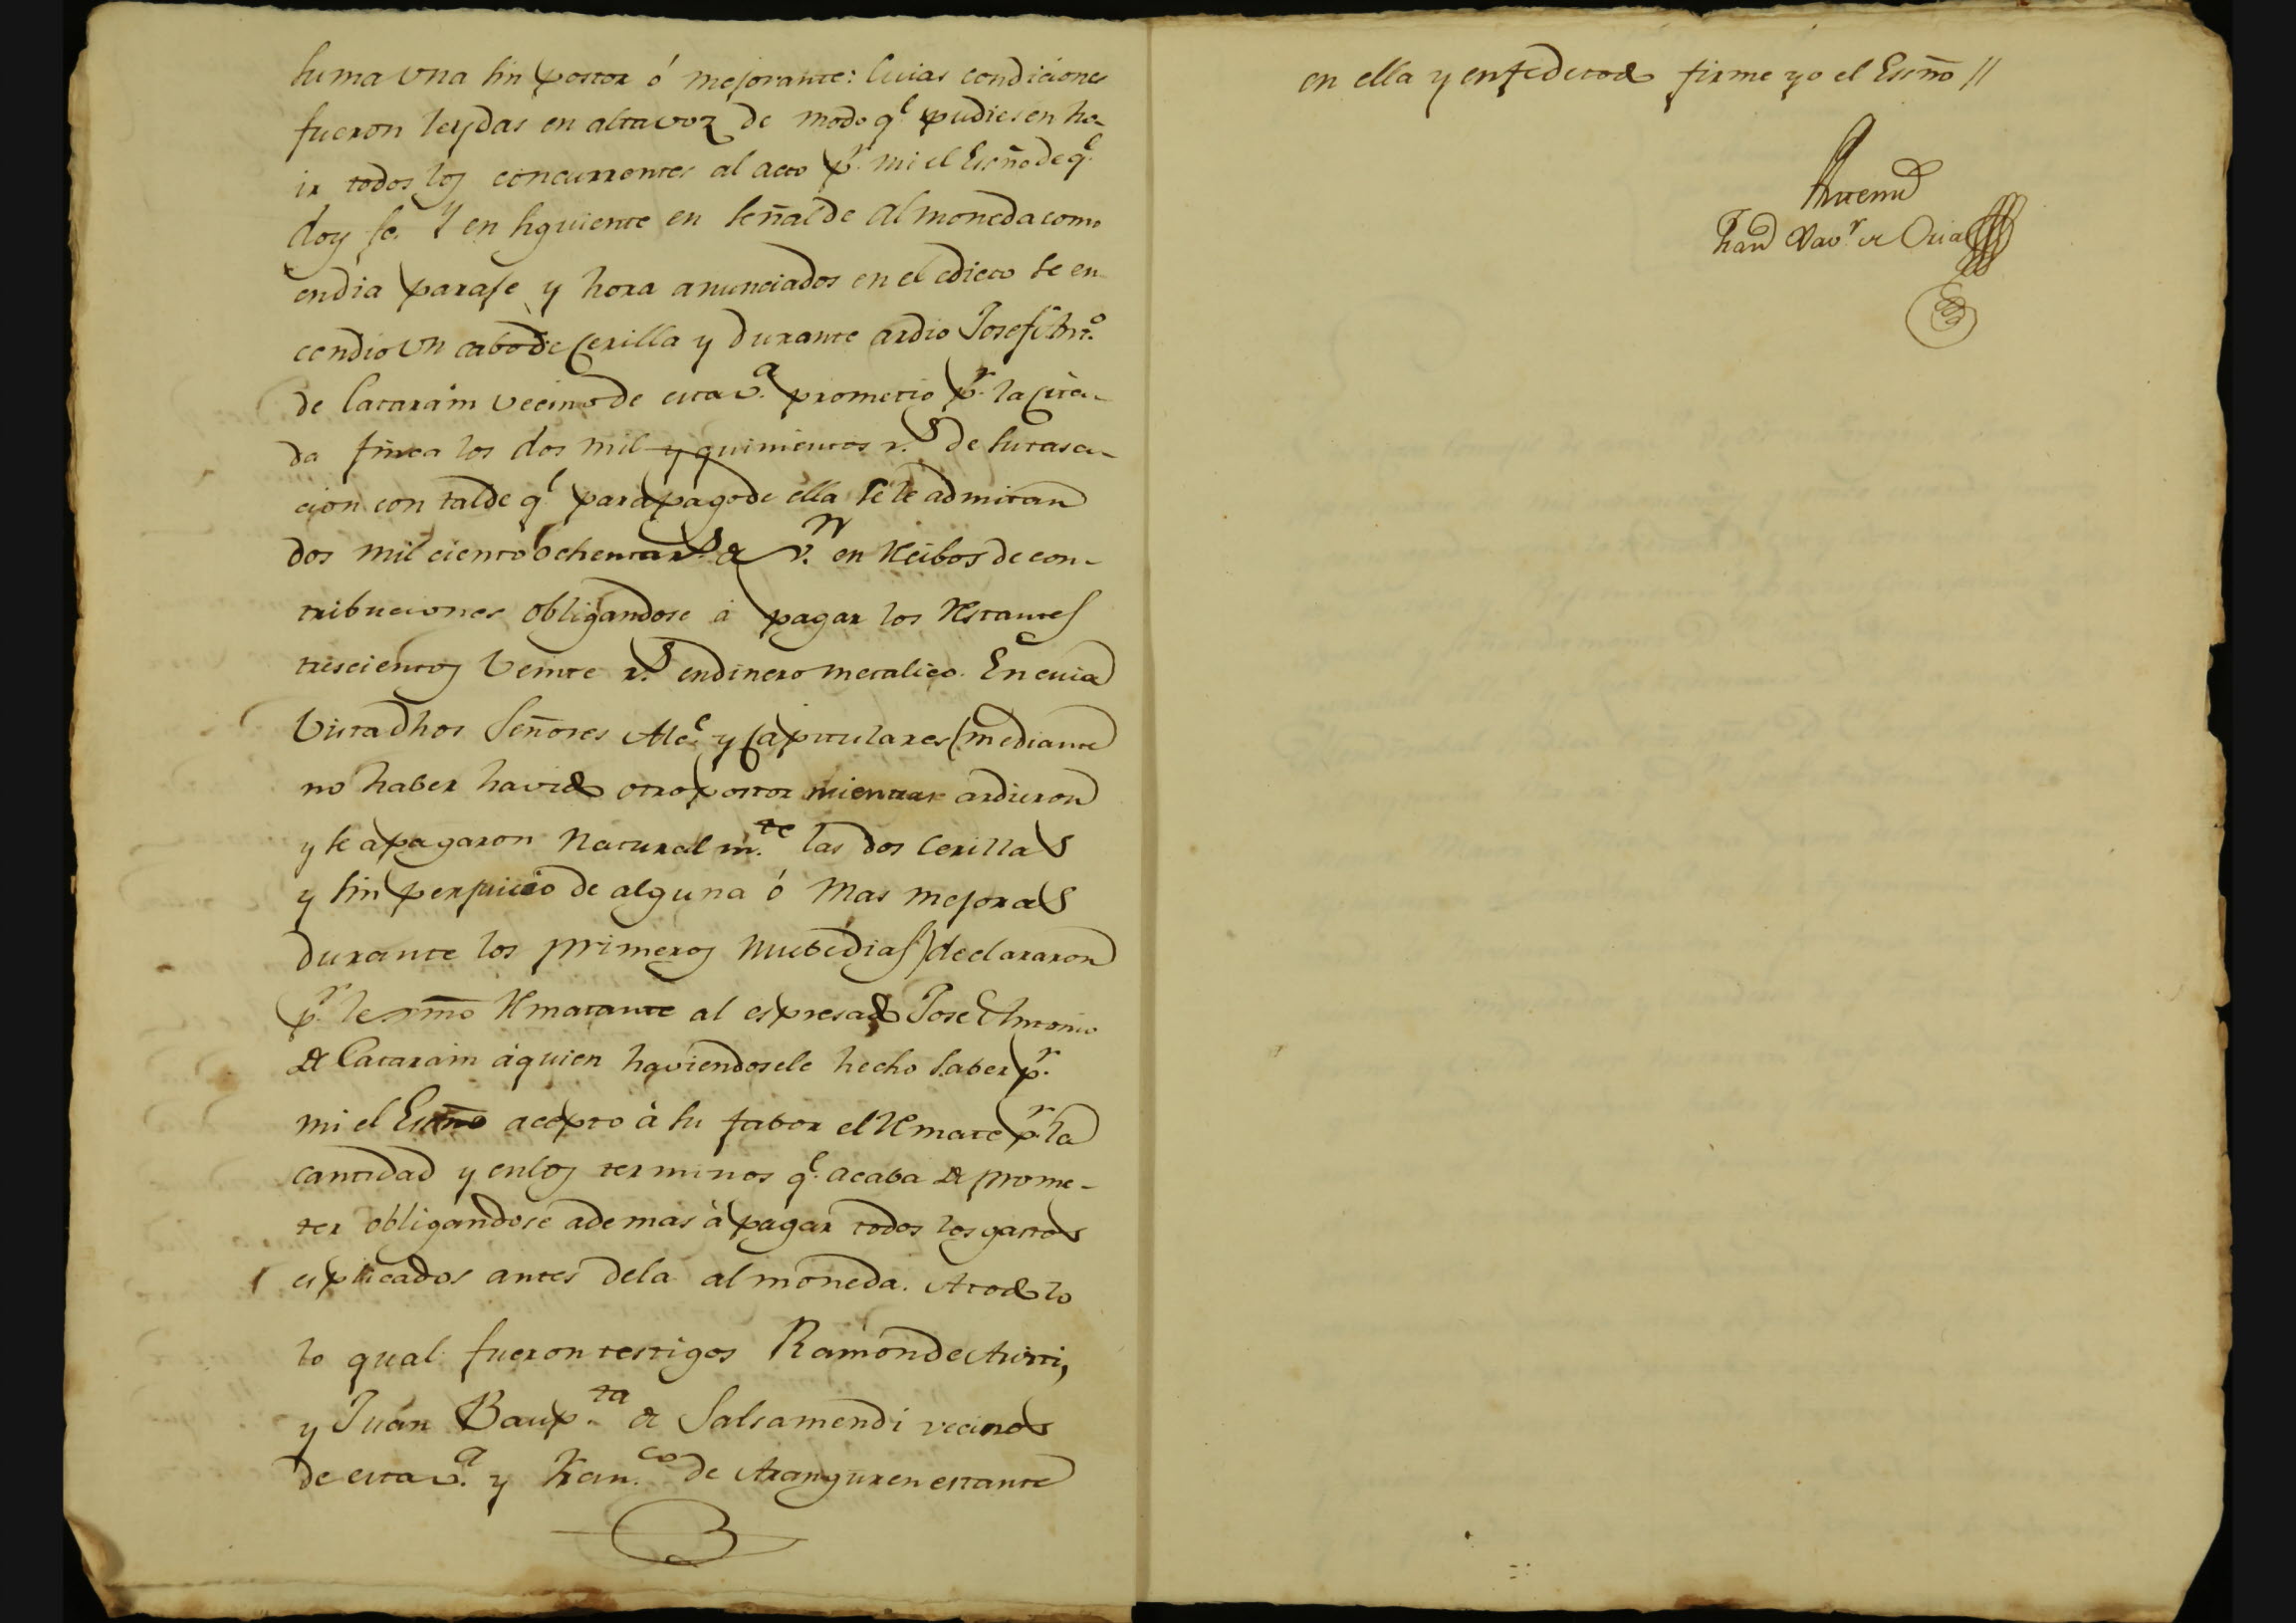 suma una sin postor ó mejorante: Cuias condiciones
fueron leydas en altavoz de modo q.e pudiesen ho-
ir todos los concurrentes al acto p.r mi el Essño de q.e
doy fe. Y en siguiente en señal de Almoneda como
en dia paraje y hora anunciados en el edicto se en-
cendio un cabo de Cerilla y durante ardio Josef Ant.o
de Lataraim vecino de esta v.a prometio p.r la cita-
da finca los dos mil y quinientos r.s de su tasa-
cion con tal de q.e para pago de ella se le admitan
dos mil ciento ochenta r.s de v.n en Recibos de con-
tribuciones obligandose á pagar los Restantes
trescientos veinte r.s en dinero metalico. En cuia
vista dhos Señores Alc.e y Capitulares (mediante
no haber havido otro postor mientras ardieron
y se apagaron Natural m.te las dos Cerillas
y sin perjuicio de alguna ó mas mejoras
durante los primeros nuebe dias) declararon
p.r lexmo Rematante al espresado Jose Antonio
de Lataraim á quien haviendosele hecho saber p.r
mi el Essño acepto à su fabor el Remate p.r la
cantidad y en los terminos q.e acaba de prome-
ter obligandose ademas à pagar todos los gastos
esplicados antes de la almoneda. A todo lo
lo qual fueron testigos Ramon de
y Juan Baup.ta de Salsamendi vecinos
de esta v.a y Fran.co de Aranguren estante
en ella y en fe de todo firme yo el Essño //
Antemi
Xav.r de Oria